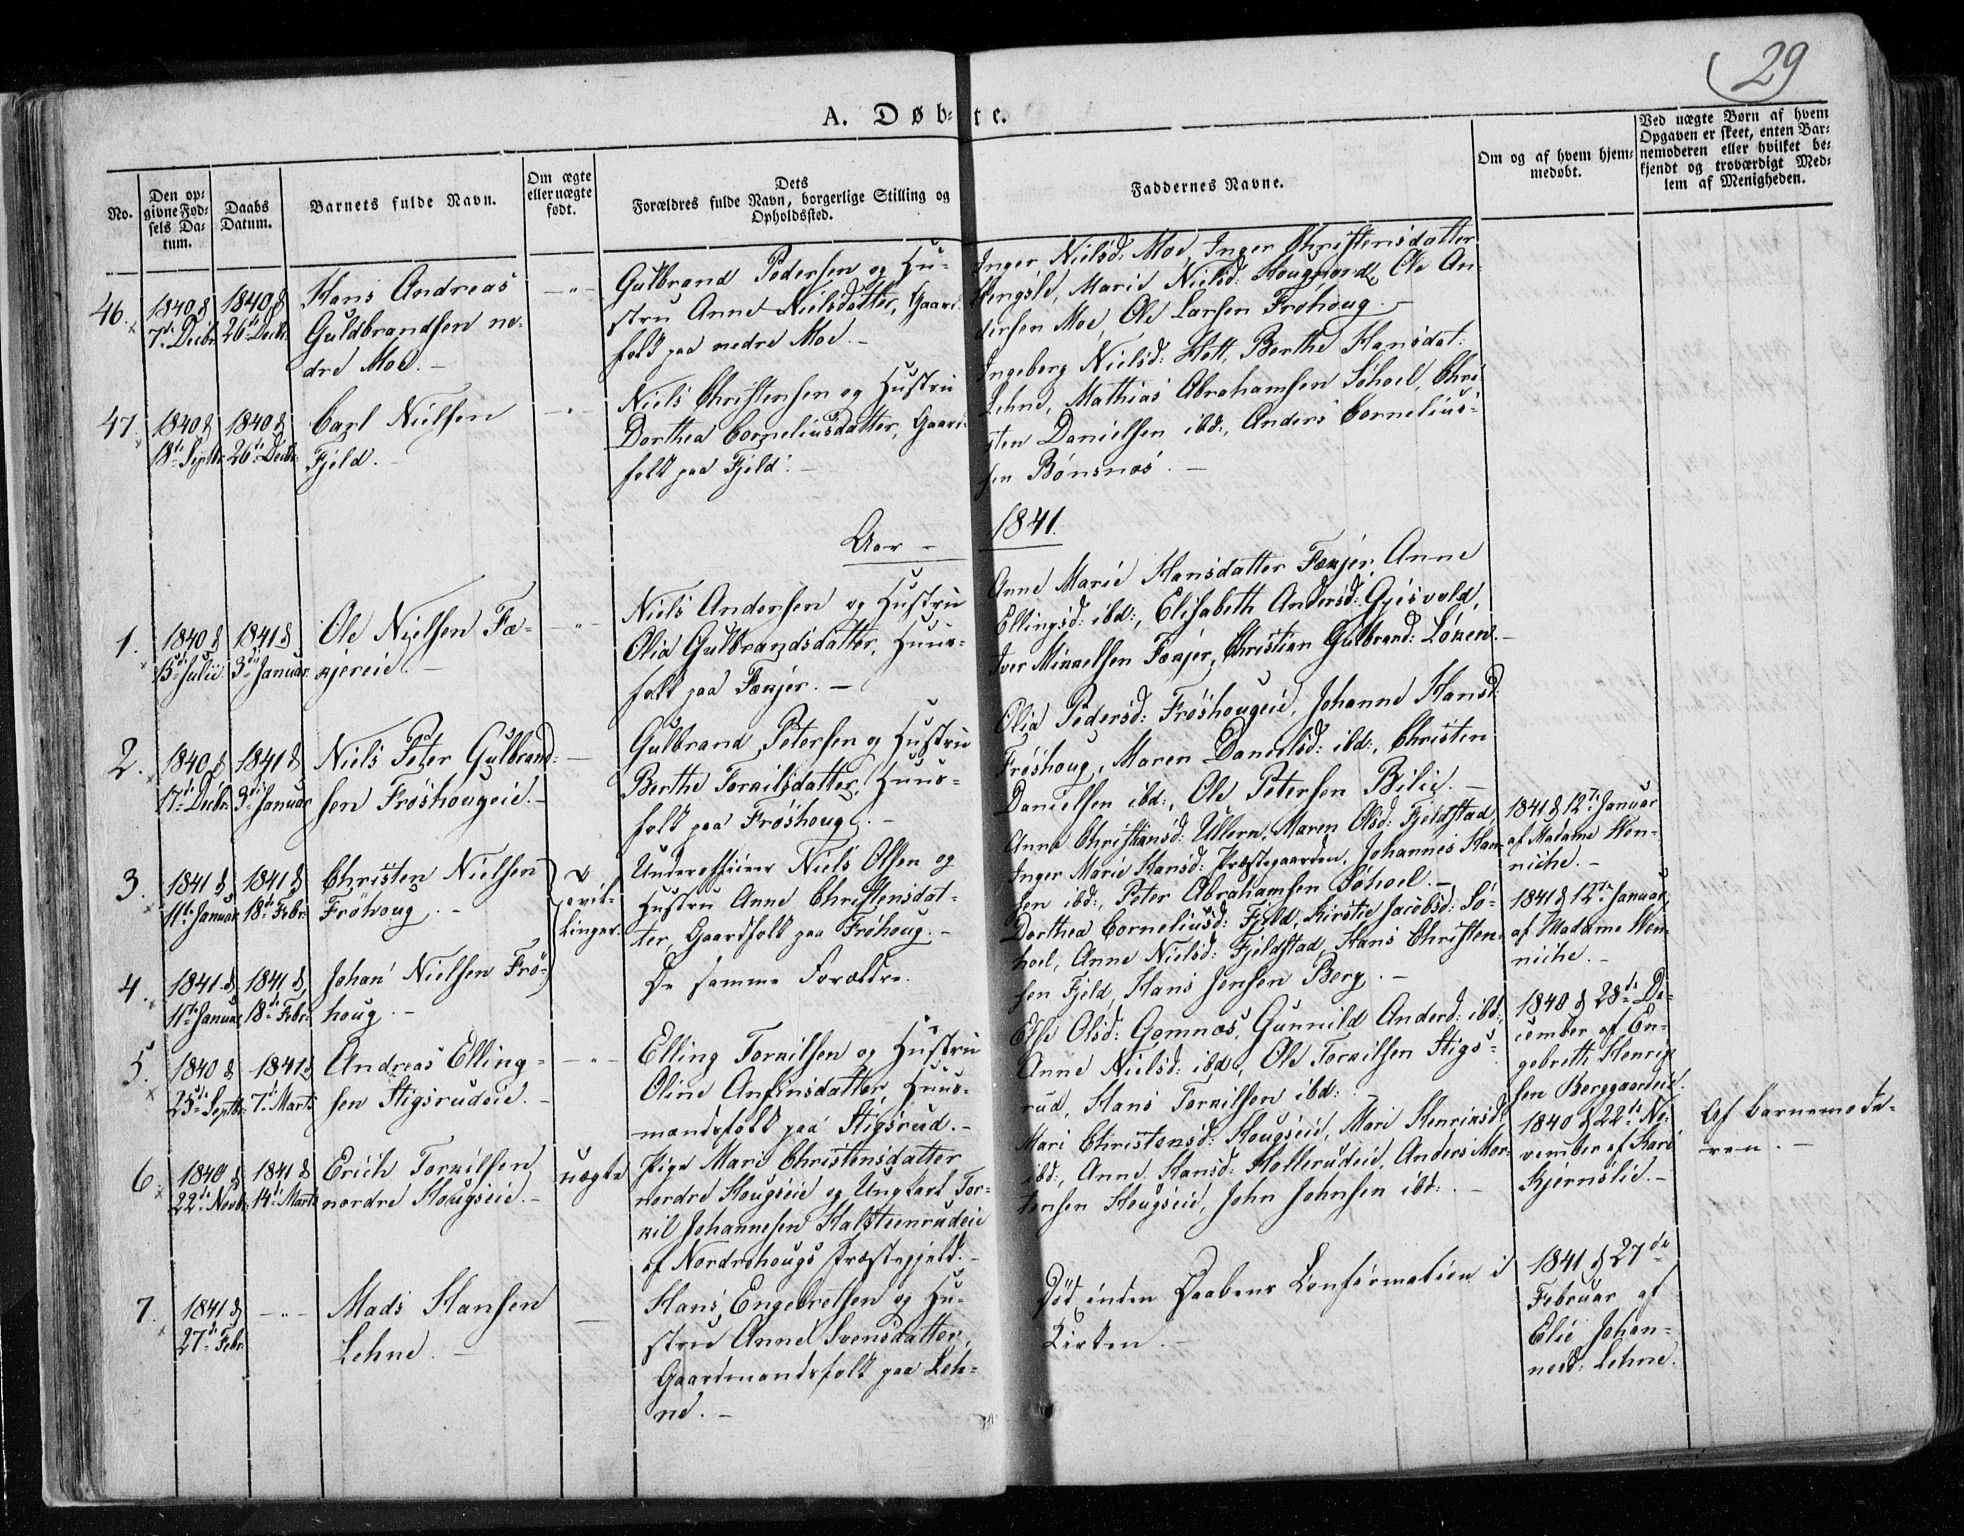 29
A. Døbte.
No.
Den opgivne Fødsels Datum.
Daabs Datum.
Barnets fulde Navn.
Om ægte eller uægte født.
Dets Forældres fulde Navn, borgerlige Stilling og Opholdssted.
Faddernes Navne.
Om og af hvem hjemmedøbt.
Ved uægte Børn af hvem Opgaven er skeet, enten Barnemoderen eller hvilket bekjendt og troværdigt Medlem af Menigheden.
46.
1840 d
7de Decbr
1840 d
26de Decbr
Hans Andreas
Guldbrandsen ne-
dre Moe. –
– " –
Gulbrand Pedersen og Hu-
stru Anne Nielsdatter, Gaard-
folk paa nedre Moe. –
Inger Nielsd: Moe, Inger Christensdatter
Hengsle, Marie Nielsd: Hougnord, Ole An-
dersen Moe, Ole Larsen Frøhoug. –
47.
1840 d
18de Septbr
1840 d
26de Decbr
Carl Nielsen
Fjeld. –
– " –
Niels Christensen og Hustru
Dorthea Corneliusdatter, Gaard-
folk paa Fjeld. –
Ingeborg Nielsd: Hett, Berthe Hansdat:
Lehne, Mathias Abrahamsen Søhoel, Chri-
sten Danielsen ibd:, Anders Cornelius-
sen Bønsnæs. –
Aar – 1841.
1.
1840 d
15de Julii
1841 d
3de Januar
Ole Nielsen Fæ-
kjereie. –
– " –
Niels Andersen og Hustru
Olia Gulbrandsdatter, Huus-
folk paa Fækjer. –
Anne Marie Hansdatter Fækjer, Anne
Ellingsd: ibd:, Elisabeth Andersd: Gjesvold,
Iver Mikkelsen Fækjer, Christian Gulbrand: Løken. –
2.
1840 d
17de Decbr
1841 d
3de Januar
Niels Peter Gulbrand-
sen Frøshougeie. –
–
Gulbrand Petersen og Hustru
Berthe Torkilsdatter, Huus-
folk paa Frøshoug. –
Olia Pedersd: Frøshougeie, Johanne Hansd:
Frøshoug, Maren Danielsd: ibd:, Christen
Danielsen ibd:, Ole Petersen Bilie. –
3.
1841 d
11te Januar
1841 d
18de Febr:
Christen Nielsen
Frøhoug. –
Tvil-
linger.
Underofficeer Niels Olsen og
Hustru Anne Christensdat-
ter, Gaardfolk paa Frøhoug. –
Anne Christiansd: Ullern, Maren Olsd: Fjeldstad,
Inger Marie Hansd: Præstegaarden, Johannes Han-
sen ibd:, Peter Abrahamsen Søhoel. –
1841 d 12te Januar
af Madame Hen-
niche. –
4.
1841 d
11te Januar
1841 d
18de Febr:
Johan Nielsen Frø-
houg. –
De samme Forældre.
Dorthea Corneliusd: Fjeld, Kirstie Jacobsd: Sø-
hoel, Anne Nielsd: Fjeldstad, Hans Christen-
sen Fjeld, Hans Jensen Berg. –
1841 d 12te Januar,
af Madame Hen-
niche. –
5.
1840 d
25de Septbr
1841 d
7de Marts
Andreas Elling-
sen Stigsrudeie. –
– " –
Elling Torkilsen og Hustru
Oline Anfinsdatter, Huus-
mandsfolk paa Stigsrud. –
Else Olsd: Gomnæs, Gunnild Andersd: ibd:,
Anne Nielsd: ibd:, Ole Torkilsen Stigs-
rud, Hans Torkilsen ibd: –
1840 d 28de De-
cember af En-
gebreth Henrik-
sen Berggaardeie.
6.
1840 d
22de Novbr
1841 d
14de Marts
Erich Torkilsen
nordre Hougseie. –
uægte
Pige Mari Christensdatter
nordre Hougseie og Ungkarl Tor-
kil Johannesen Halsteenrudeie
af Norderhougs Præstegjeld. –
Mari Christensd: Hougseie, Mari Henriksd:
ibd:, Anne Hansd: Hollerudeie, Anders Mor-
tensen Hougseie, John Johnsen ibd: –
1840 d 22de No-
vember af Kari
Kjernslie. –
Af Barnemode-
ren. –
7.
1841 d
27de Febr
– " –
Mads Hansen
Lehne. –
–
Hans Engebretsen og Hu-
stru Anne Svensdatter,
Gaardmandsfolk paa Leh-
ne. –
Død inden Daabens Confirmation i
Kirken. –
1841 d 27de
Februar af
Elie Johan-
nesd: Lehne.